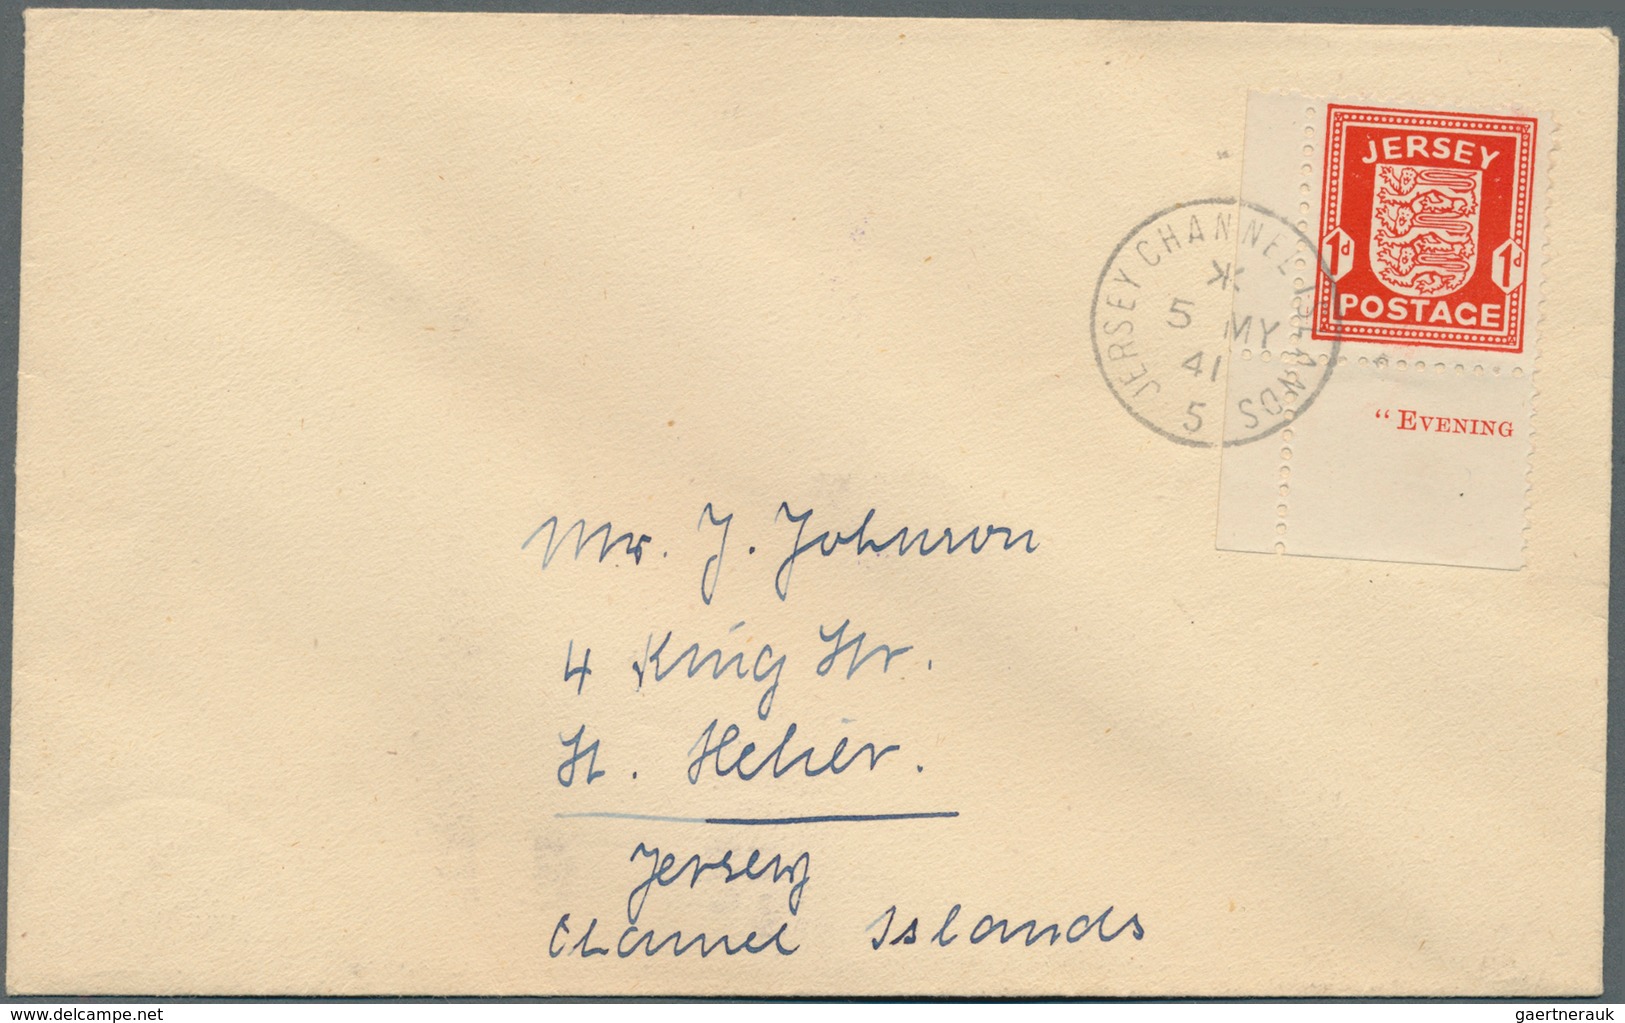 JERSEY
1d 1d
POSTAGE
JERSEY CHANNEL ISLANDS
5 MY
41
5
“EVENING
Mr. J. Johnson
4 King Str.
St. Helier.
Jersey
Channel Islands
delcampe.net
gaertnerauk